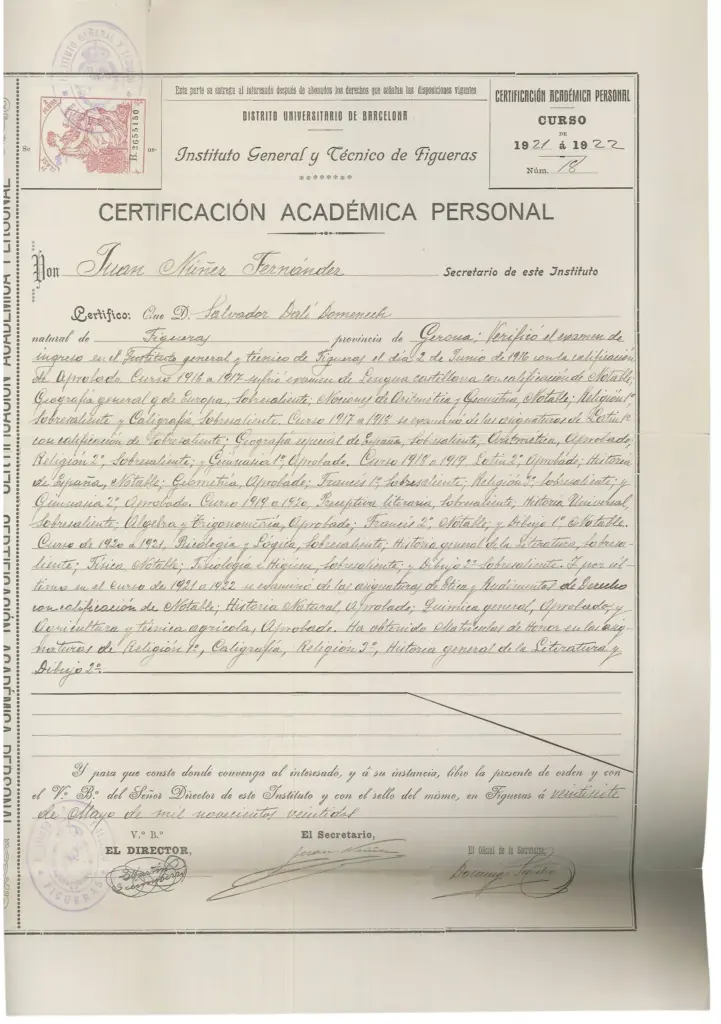 INSTITUTO GENERAL Y TECNICO
Esta parte se entrega al interesado después de abonados los derechos que señalan las disposiciones vigentes
DISTRITO UNIVERSITARIO DE BARCELONA
Instituto General y Técnico de Figueras
CERTIFICACIÓN ACADÉMICA PERSONAL
CURSO
DE
1921 á 1922
Núm. 18
CERTIFICACIÓN ACADÉMICA PERSONAL
Don Juan Núñez Fernández Secretario de este Instituto
Certifico: Que D. Salvador Dalí Domenech
natural de Figueras provincia de Gerona; Verificó el examen de
ingreso en el Instituto general y técnico de Figueras el día 2 de Junio de 1916 con la calificación
de Aprobado. Curso 1916 a 1917 sufrió examen de Lengua castellana con calificación de Notable;
Geografía general y de Europa, Sobresaliente; Nociones de Aritmética y Geometría, Notable; Religión 1º
Sobresaliente y Caligrafía Sobresaliente. Curso 1917 a 1918 se examinó de las asignaturas de Latín 1º
con calificación de Sobresaliente; Geografía especial de España, Sobresaliente, Aritmética, Aprobado,
Religión 2º, Sobresaliente; y Gimnasia 1º, Aprobado. Curso 1918 a 1919 Latín 2º Aprobado; Historia
de España, Notable; Geometría, Aprobado; Francés 1º, Sobresaliente; Religión 3º Sobresaliente; y
Gimnasia 2º, Aprobado. Curso 1919 a 1920, Preceptiva literaria, Sobresaliente, Historia Universal,
Sobresaliente; Algebra y Trigonometría, Aprobado; Francés 2º, Notable, y Dibujo 1º Notable.
Curso de 1920 a 1921, Psicología y Lógica, Sobresaliente; Historia general de la Literatura, Sobresa-
liente; Física Notable; Fisiología e Higiene, Sobresaliente; y Dibujo 2º Sobresaliente. Y por úl-
timo en el curso de 1921 a 1922 se examinó de las asignaturas de Etica y Rudimentos de Derecho
con calificación de Notable; Historia Natural, Aprobado; Química general, Aprobado; y
Agricultura y técnica agrícola, Aprobado. Ha obtenido Matrículas de Honor en las asig-
naturas de Religión 1º, Caligrafía, Religión 3º, Historia general de la Literatura y
Dibujo 2º.
Y para que conste donde convenga al interesado, y á su instancia, libro la presente de orden y con
el V.º B.º del Señor Director de este Instituto y con el sello del mismo, en Figueras á veintisiete
de Mayo de mil novecientos veintidos
V.º B.º
EL DIRECTOR,
El Secretario,
Juan Núñez
El Oficial de la Secretaría,
FIGUERAS
CERTIFICACIÓN ACADÉMICA PERSONAL